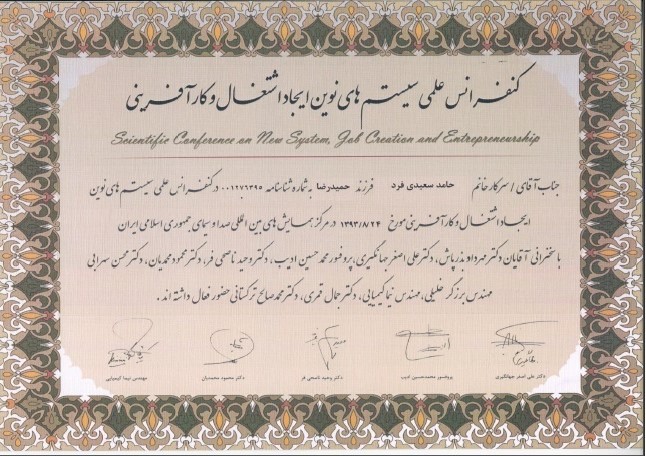 کنفرانس علمی سیستم های نوین ایجاد اشتغال و کارآفرینی
Scientific Conference on New System, Job Creation and Entrepreneurship
جناب آقای / سرکار خانم حامد سعیدی فرد فرزند حمیدرضا به شماره شناسنامه ۰۰۱۲۷۶۳۹۵ در کنفرانس علمی سیستم های نوین
ایجاد اشتغال و کارآفرینی مورخ ۱۳۹۳/۸/۲۴ در مرکز همایش های بین المللی صدا و سیمای جمهوری اسلامی ایران
با سخنرانی آقایان دکتر مهرداد بذرپاش، دکتر علی اصغر جهانگیری، پروفسور محمد حسین ادیب، دکتر وحید ناصحی فر، دکتر محمود محمدیان، دکتر محسن سرابی
مهندس برزگر خلیلی، مهندس نیما کیمیایی، دکتر جمال قمری، دکتر محمد صالح ترکستانی حضور فعال داشته اند.
دکتر علی اصغر جهانگیری
پروفسور محمدحسین ادیب
دکتر وحید ناصحی فر
دکتر محمود محمدیان
مهندس نیما کیمیایی